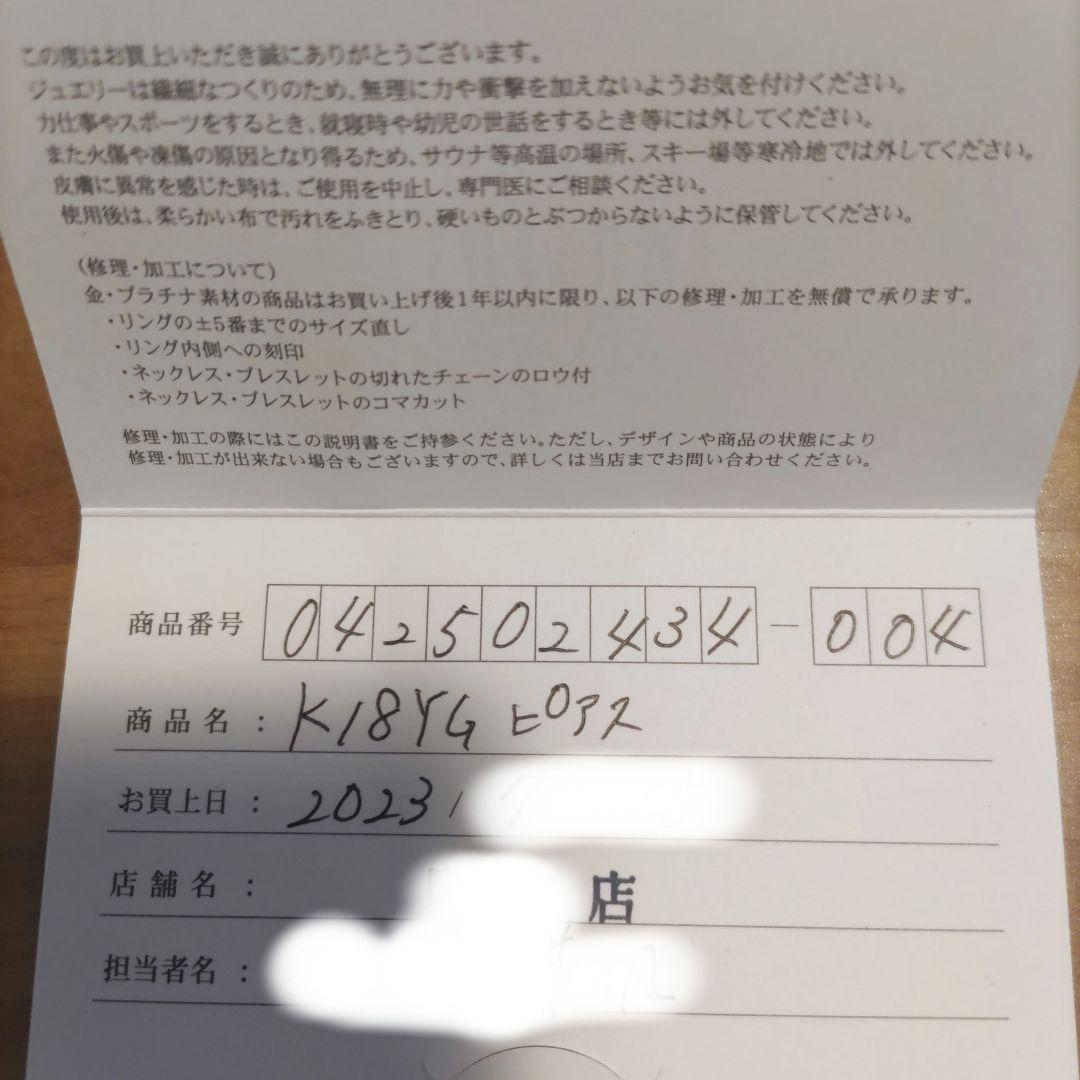 この度はお買上いただき誠にありがとうございます。
ジュエリーは繊細なつくりのため、無理に力や衝撃を加えないようお気を付けください。
力仕事やスポーツをするとき、就寝時や幼児の世話をするとき等には外してください。
また火傷や凍傷の原因となり得るため、サウナ等高温の場所、スキー場等寒冷地では外してください。
皮膚に異常を感じた時は、ご使用を中止し、専門医にご相談ください。
使用後は、柔らかい布で汚れをふきとり、硬いものとぶつからないように保管してください。
(修理・加工について)
金・プラチナ素材の商品はお買い上げ後1年以内に限り、以下の修理・加工を無償で承ります。
・リングの±5番までのサイズ直し
・リング内側への刻印
・ネックレス・ブレスレットの切れたチェーンのロウ付
・ネックレス・ブレスレットのコマカット
修理・加工の際にはこの説明書をご持参ください。ただし、デザインや商品の状態により
修理・加工が出来ない場合もございますので、詳しくは当店までお問い合わせください。
商品番号 042502434-004
商品名 : K18YG ピアス
お買上日 : 2023/
店舗名 : 店
担当者名 :